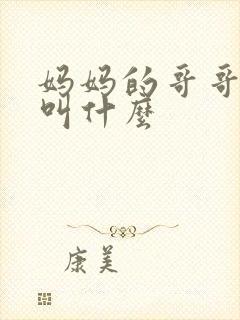 妈妈的哥哥
叫什麼
康美